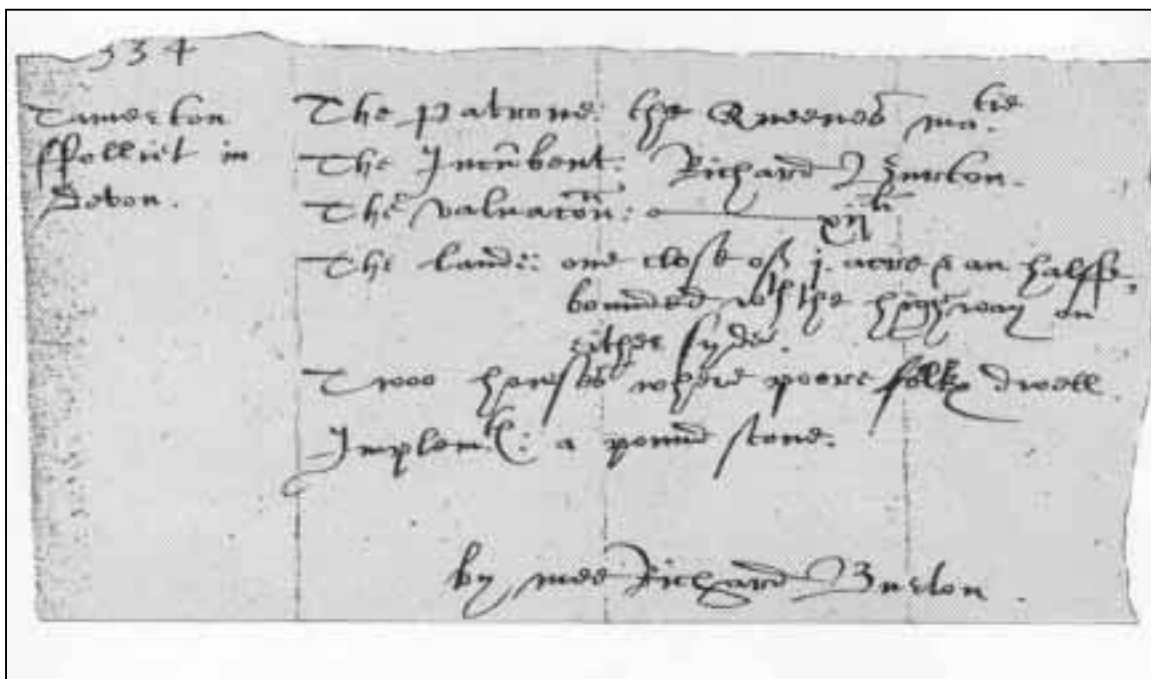 534
Tamerton
ffolliet in
Devon.
The patrone: the Queenes ma:tie
The Incūbent: Richard Burton.
The valuatōn: xijli
The lande: one close of j. acre & an halffe,
bounded wth the highway on
either syde.
Twoo howses where poore folke dwell.
Implem: a pound stone.
by mee Richard Burton.